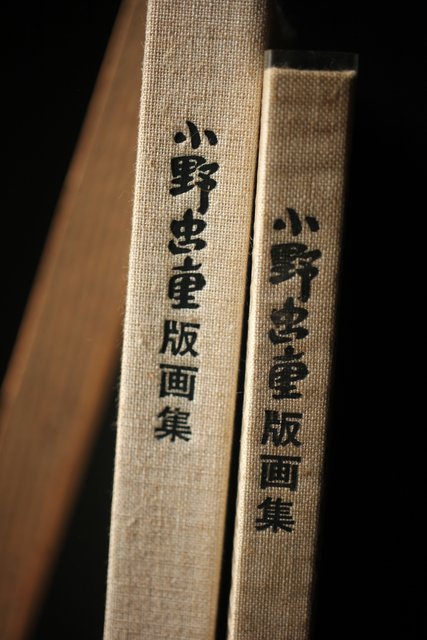 小野忠重版画集
小野忠重版画集